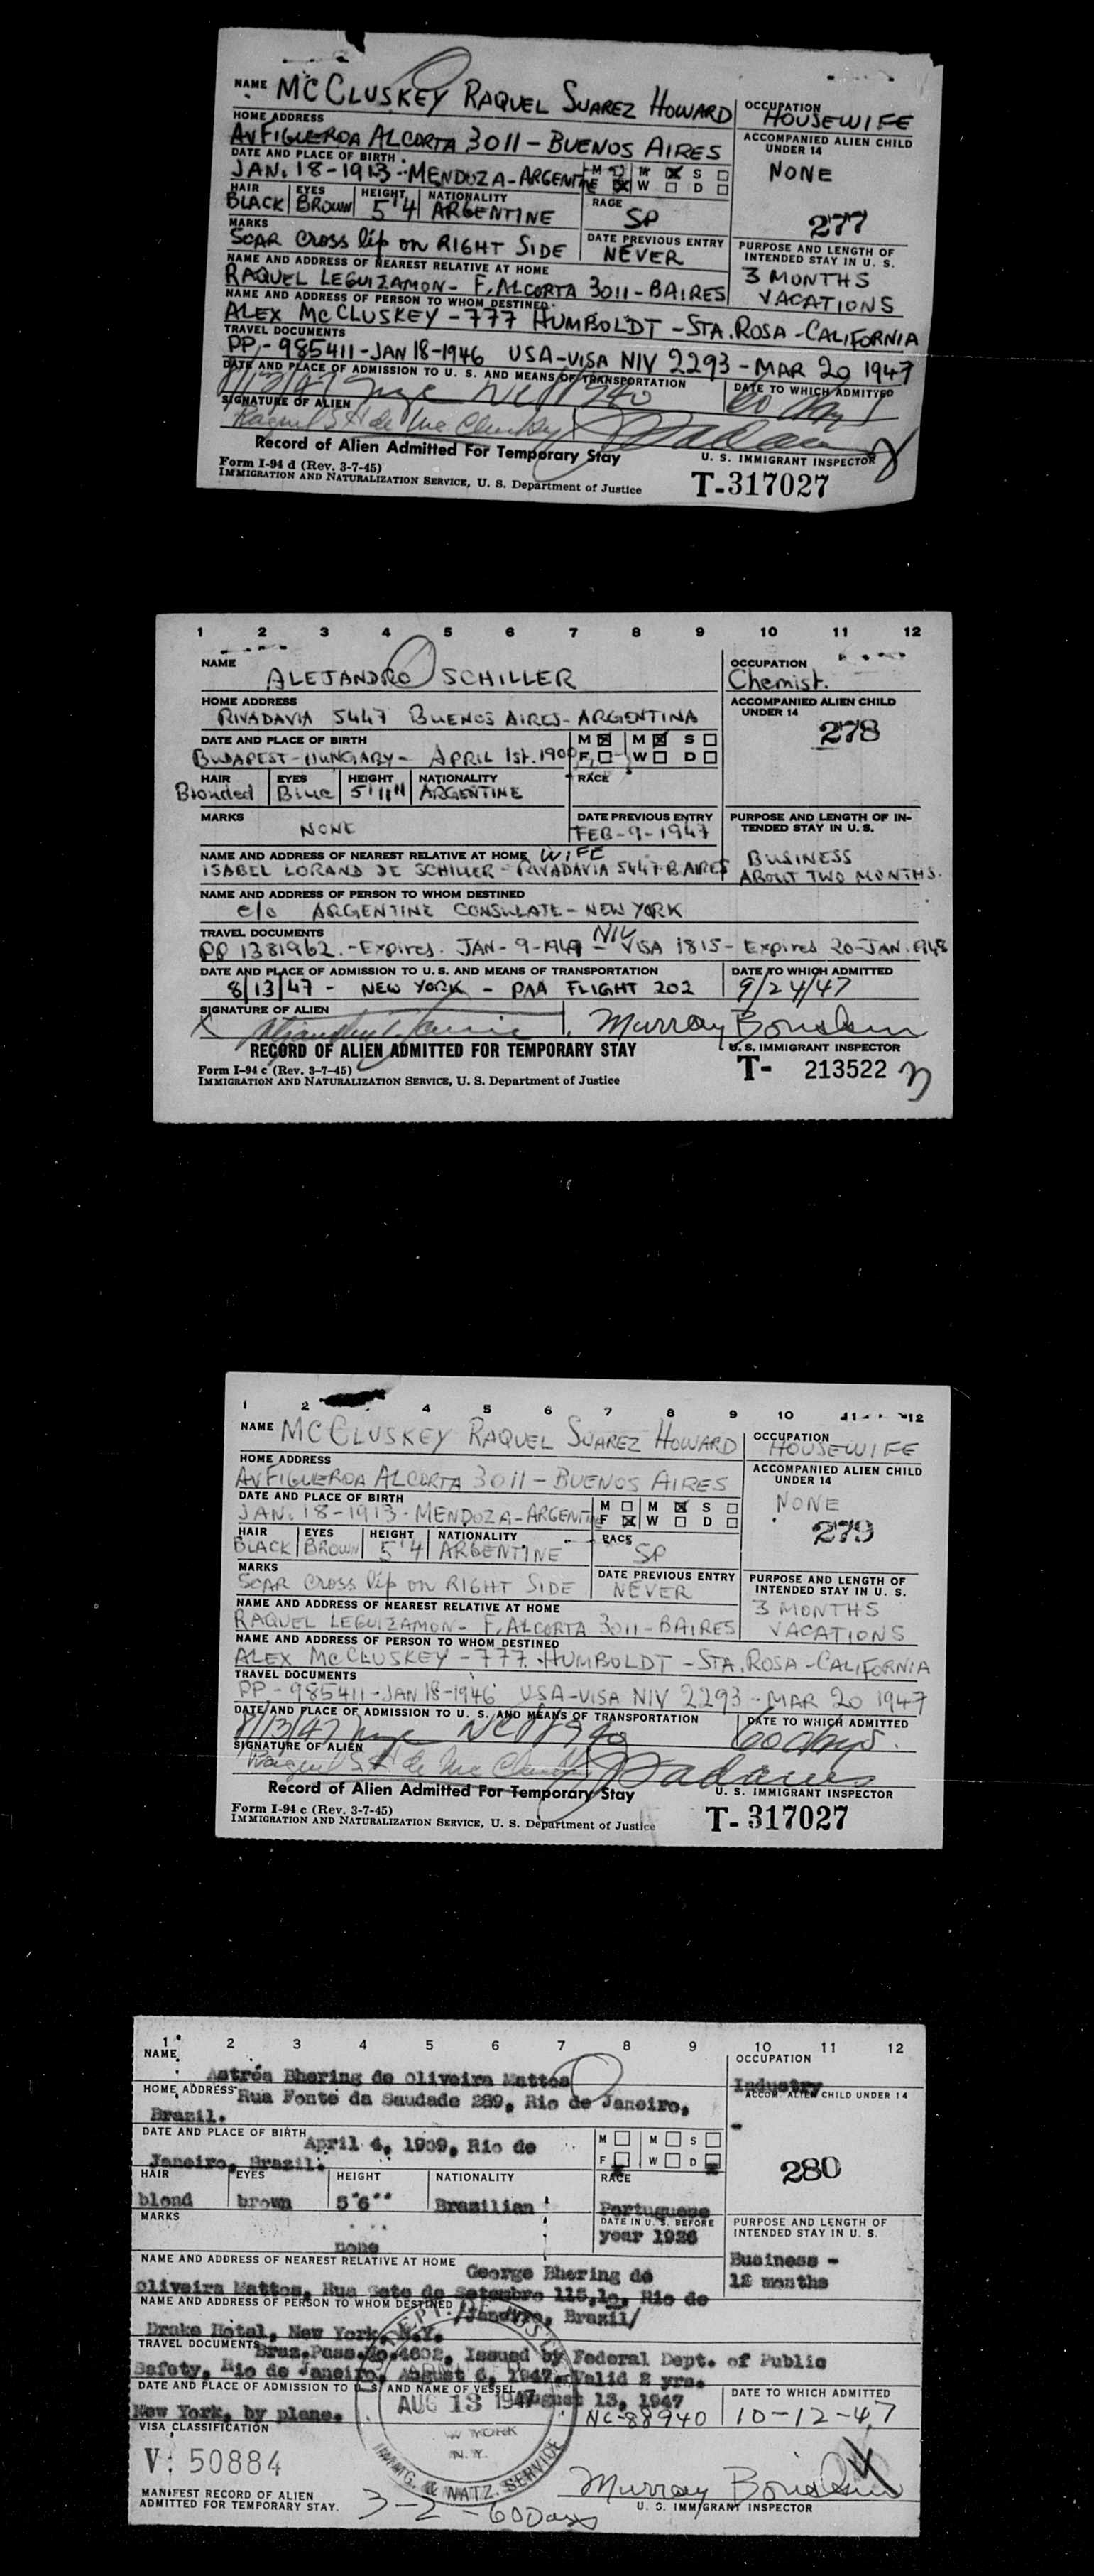 NAME MCCLUSKEY RAQUEL SUAREZ HOWARD
OCCUPATION HOUSEWIFE
HOME ADDRESS
AV FIGUEROA ALCORTA 3011 - BUENOS AIRES
ACCOMPANIED ALIEN CHILD UNDER 14
NONE
DATE AND PLACE OF BIRTH
JAN. 18-1913 - MENDOZA - ARGENTINE
M M S
F W D
277
HAIR EYES HEIGHT NATIONALITY RACE
BLACK BROWN 5'4 ARGENTINE SP
MARKS
SCAR cross lip on RIGHT SIDE
DATE PREVIOUS ENTRY
NEVER
PURPOSE AND LENGTH OF INTENDED STAY IN U. S.
3 MONTHS
VACATIONS
NAME AND ADDRESS OF NEAREST RELATIVE AT HOME
RAQUEL LEGUIZAMON - F. ALCORTA 3011 - BAIRES
NAME AND ADDRESS OF PERSON TO WHOM DESTINED
ALEX MCCLUSKEY - 777 HUMBOLDT - STA. ROSA - CALIFORNIA
TRAVEL DOCUMENTS
PP - 985411 - JAN 18-1946 USA - VISA NIV 2293 - MAR 20 1947
DATE AND PLACE OF ADMISSION TO U. S. AND MEANS OF TRANSPORTATION
DATE TO WHICH ADMITTED
8/13/47 NC 88940 60 days
SIGNATURE OF ALIEN
Raquel S H de Mc Cluskey
Record of Alien Admitted For Temporary Stay
U. S. IMMIGRANT INSPECTOR
Form I-94 d (Rev. 3-7-45)
IMMIGRATION AND NATURALIZATION SERVICE, U. S. Department of Justice
T-317027
1 2 3 4 5 6 7 8 9 10 11 12
NAME ALEJANDRO SCHILLER
OCCUPATION
Chemist.
HOME ADDRESS
RIVADAVIA 5447 BUENOS AIRES - ARGENTINA
ACCOMPANIED ALIEN CHILD UNDER 14
278
DATE AND PLACE OF BIRTH
BUDAPEST - HUNGARY - APRIL 1st. 1900
M M S
F W D
HAIR EYES HEIGHT NATIONALITY RACE
Blonded Blue 5'11" ARGENTINE
MARKS
NONE
DATE PREVIOUS ENTRY
FEB-9-1947
PURPOSE AND LENGTH OF INTENDED STAY IN U. S.
BUSINESS
ABOUT TWO MONTHS.
NAME AND ADDRESS OF NEAREST RELATIVE AT HOME WIFE
ISABEL LORAND DE SCHILLER - RIVADAVIA 5447 B. AIRES
NAME AND ADDRESS OF PERSON TO WHOM DESTINED
c/o ARGENTINE CONSULATE - NEW YORK
TRAVEL DOCUMENTS
PP 1381962. - Expires. JAN-9-1949 - NIV VISA 1815 - Expires 20-JAN. 1948
DATE AND PLACE OF ADMISSION TO U. S. AND MEANS OF TRANSPORTATION
DATE TO WHICH ADMITTED
8/13/47 - NEW YORK - PAA FLIGHT 202 9/24/47
SIGNATURE OF ALIEN
X Murray
RECORD OF ALIEN ADMITTED FOR TEMPORARY STAY
U. S. IMMIGRANT INSPECTOR
Form I-94 c (Rev. 3-7-45)
IMMIGRATION AND NATURALIZATION SERVICE, U. S. Department of Justice
T- 213522
1 2 4 5 6 7 8 9 10 11 12
NAME MCCLUSKEY RAQUEL SUAREZ HOWARD
OCCUPATION HOUSEWIFE
HOME ADDRESS
AV FIGUEROA ALCORTA 3011 - BUENOS AIRES
ACCOMPANIED ALIEN CHILD UNDER 14
NONE
DATE AND PLACE OF BIRTH
JAN. 18-1913 - MENDOZA - ARGENTINE
M M S
F W D
279
HAIR EYES HEIGHT NATIONALITY RACE
BLACK BROWN 5'4 ARGENTINE SP
MARKS
SCAR cross lip on RIGHT SIDE
DATE PREVIOUS ENTRY
NEVER
PURPOSE AND LENGTH OF INTENDED STAY IN U. S.
3 MONTHS
VACATIONS
NAME AND ADDRESS OF NEAREST RELATIVE AT HOME
RAQUEL LEGUIZAMON - F. ALCORTA 3011 - BAIRES
NAME AND ADDRESS OF PERSON TO WHOM DESTINED
ALEX MCCLUSKEY - 777 HUMBOLDT - STA. ROSA - CALIFORNIA
TRAVEL DOCUMENTS
PP - 985411 - JAN 18-1946 USA - VISA NIV 2293 - MAR 20 1947
DATE AND PLACE OF ADMISSION TO U. S. AND MEANS OF TRANSPORTATION
DATE TO WHICH ADMITTED
8/13/47 NC 88940 60 days.
SIGNATURE OF ALIEN
Raquel S H de Mc Cluskey adams
Record of Alien Admitted For Temporary Stay
U. S. IMMIGRANT INSPECTOR
Form I-94 c (Rev. 3-7-45)
IMMIGRATION AND NATURALIZATION SERVICE, U. S. Department of Justice
T-317027
1 2 3 4 5 6 7 8 9 10 11 12
NAME
Astréa Bhering de Oliveira Mattos
OCCUPATION
Industry
HOME ADDRESS Rua Fonte da Saudade 289, Rio de Janeiro,
Brazil.
ACCOM. ALIEN CHILD UNDER 14
-
DATE AND PLACE OF BIRTH April 4, 1909, Rio de
Janeiro, Brazil.
M M S
F W D
280
HAIR EYES HEIGHT NATIONALITY RACE
blond brown 5"6"" Brazilian Portuguese
MARKS
none
DATE IN U. S. BEFORE
year 1926
PURPOSE AND LENGTH OF INTENDED STAY IN U. S.
Business -
12 months
NAME AND ADDRESS OF NEAREST RELATIVE AT HOME George Bhering de
Oliveira Mattos, Rua Sete de Setembro 115, Rio de
NAME AND ADDRESS OF PERSON TO WHOM DESTINED /Janeiro, Brazil/
Drake Hotel, New York, N.Y.
TRAVEL DOCUMENTS Braz.Pass.No.4602, Issued by Federal Dept. of Public
Safety, Rio de Janeiro, August 6, 1947. Valid 2 yrs.
DATE AND PLACE OF ADMISSION TO U. S. AND NAME OF VESSEL August 13, 1947
DATE TO WHICH ADMITTED
New York, by plane. NC-88940 10-12-47
AUG 13 1947
W YORK
N.Y.
IMMIG. & NATZ. SERVICE
VISA CLASSIFICATION
V: 50884
MANIFEST RECORD OF ALIEN
ADMITTED FOR TEMPORARY STAY.
3-2-60 Days
Murray
U. S. IMMIGRANT INSPECTOR